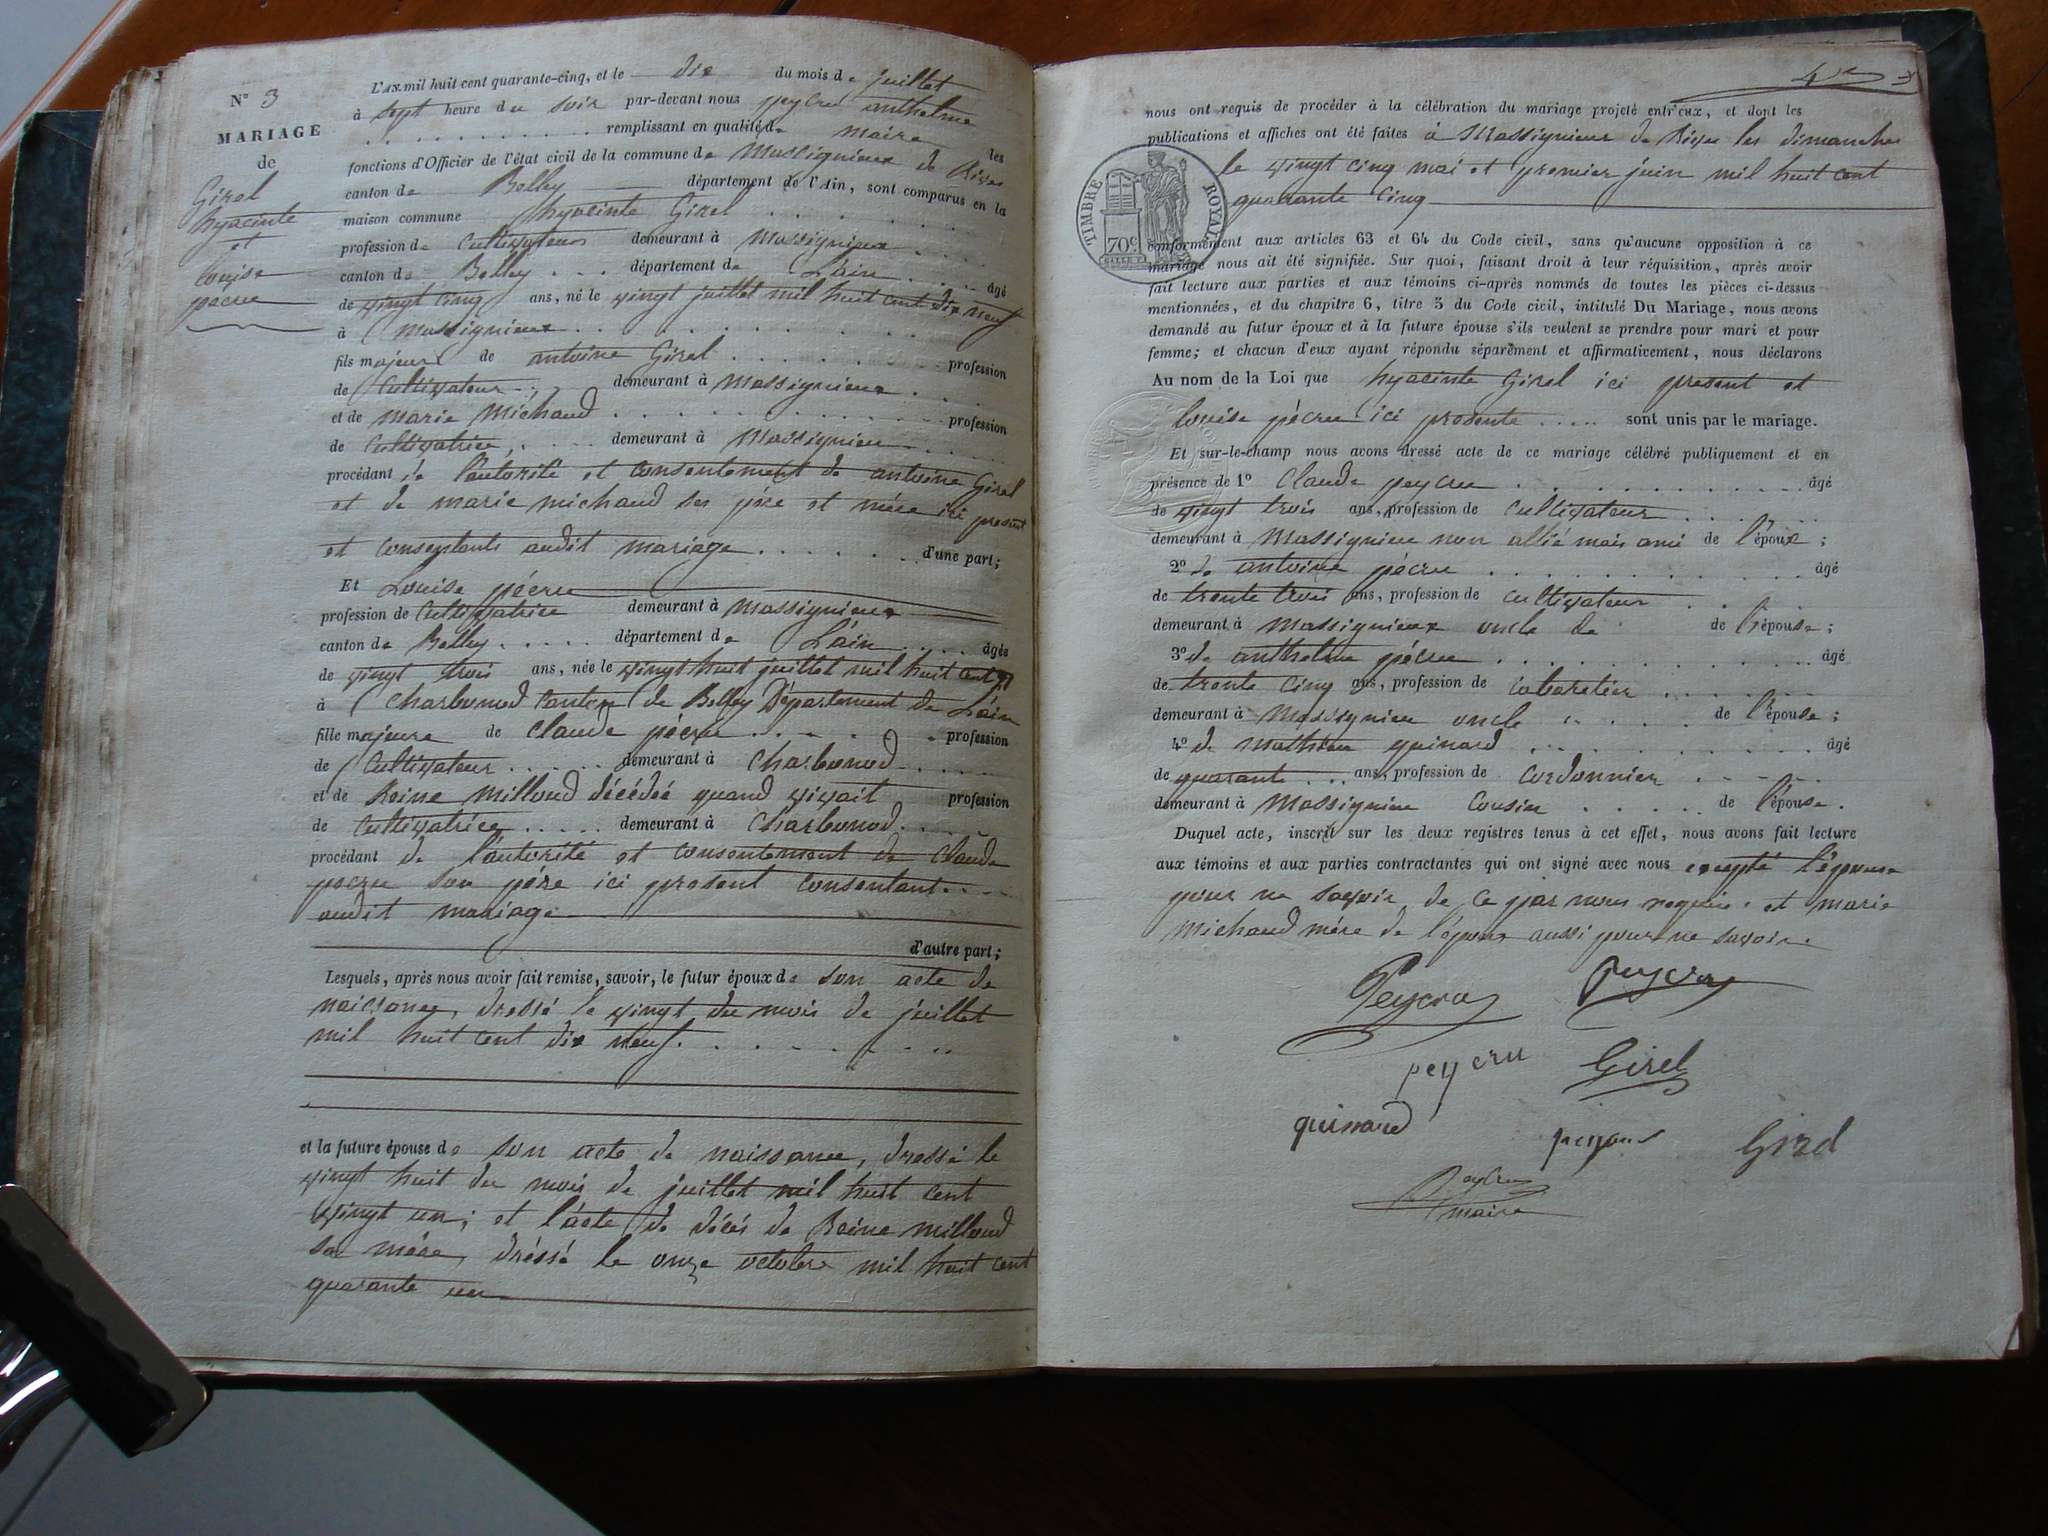 N° 3
MARIAGE
de
Girel
hyacinte
et
louise
pécru
L'AN mil huit cent quarante-cinq, et le dix du mois de juillet
à sept heure du soir par-devant nous peycru anthelme
remplissant en qualité de maire les
fonctions d'Officier de l'état civil de la commune de Massignieux de Rives
canton de Belley département de l'Ain, sont comparus en la
maison commune hyacinte Girel
profession de Cultivateur demeurant à Massignieux
canton de Belley département de L'ain âgé
de vingt cinq ans, né le vingt juillet mil huit cent dix neuf
à Massignieux
fils majeur de antoine Girel profession
de Cultivateur demeurant à Massignieux
et de marie Michaud profession
de Cultivatrice demeurant à Massignieu
procédant de l'autorité et consentement de antoine Girel
et de marie michaud ses père et mère ici present
et consentants audit mariage d'une part;
Et Louise pécru
profession de Cultivatrice demeurant à Massignieux
canton de Belley département de L'ain âgée
de vingt trois ans, née le vingt huit juillet mil huit cent 21
à Charbonod canton de Belley Département de L'ain
fille majeure de claude pécru profession
de Cultivateur demeurant à Charbonod
et de Reine milloud décédée quand vivait profession
de Cultivatrice demeurant à Charbonod
procédant de l'autorité et consentement de claude
pecru son père ici present consentant
audit mariage
d'autre part;
Lesquels, après nous avoir fait remise, savoir, le futur époux de son acte de
naissance, dressé le vingt du mois de juillet
mil huit cent dix neuf.
et la future épouse de son acte de naissance, dressé le
vingt huit du mois de juillet mil huit cent
vingt un; et l'acte de décés de Reine milloud
sa mère, dréssé le onze octobre mil huit cent
quarante un
nous ont requis de procéder à la célébration du mariage projeté entr'eux, et dont les
publications et affiches ont été faites à Massignieux de Rives les dimanches
le vingt cinq mai et premier juin mil huit cent
quarante cinq
TIMBRE ROYAL
70c
conformément aux articles 63 et 64 du Code civil, sans qu'aucune opposition à ce
mariage nous ait été signifiée. Sur quoi, faisant droit à leur réquisition, après avoir
fait lecture aux parties et aux témoins ci-après nommés de toutes les pièces ci-dessus
mentionnées, et du chapitre 6, titre 5 du Code civil, intitulé Du Mariage, nous avons
demandé au futur époux et à la future épouse s'ils veulent se prendre pour mari et pour
femme; et chacun d'eux ayant répondu séparément et affirmativement, nous déclarons
Au nom de la Loi que hyacinte Girel ici present et
louise pécru ici presente sont unis par le mariage.
Et sur-le-champ nous avons dressé acte de ce mariage célébré publiquement et en
présence de 1° Claude peycru âgé
de vingt trois ans, profession de Cultivateur
demeurant à Massignieu non allié mais ami de l'époux;
2° de antoine pécru âgé
de trente trois ans, profession de cultivateur
demeurant à Massignieux oncle de de l'épouse;
3° de anthelme pécru âgé
de trente cinq ans, profession de cabaretier
demeurant à Massignieu oncle de l'épouse;
4° de Mathieu guinard âgé
de quarante ans, profession de cordonnier
demeurant à Massignieu Cousin de l'épouse.
Duquel acte, inscrit sur les deux registres tenus à cet effet, nous avons fait lecture
aux témoins et aux parties contractantes qui ont signé avec nous excepté l'épouse
pour ne savoir de ce par nous requise et marie
michaud mére de l'époux aussi pour ne savoir.
Peycru peycru
peycru Girel
guinard peycru Girel
Peycru
maire